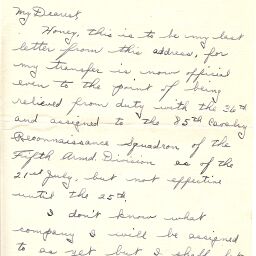 My Dearest,
Honey, this is to be my last
letter from this address, for
my transfer is now official
even to the point of being
relieved from duty with the 36th
and assigned to the 85th Cavalry
Reconnaissance Squadron of the
Fifth Armd. Division as of the
21st July, but not effective
until the 25th.
I don't know what
company I will be assigned
to as yet but I shall